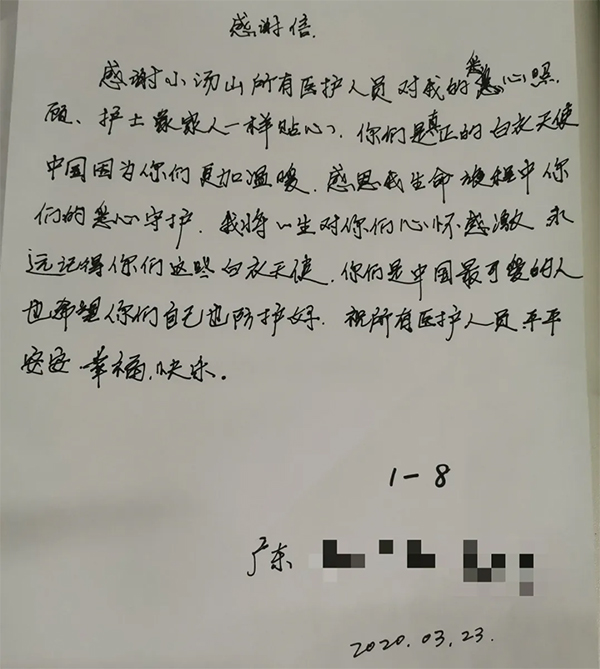 感谢信.
感谢小汤山所有医护人员对我的悉心照
顾、护士象家人一样贴心、你们是真正的白衣天使
中国因为你们更加温暖.感恩我生命旅程中你
们的悉心守护.我将一生对你们心怀感激 永
远记得你们这些白衣天使.你们是中国最可爱的人
也希望你们自己也防护好.祝所有医护人员平平
安安 幸福.快乐.
1-8
广东
2020.03.23.